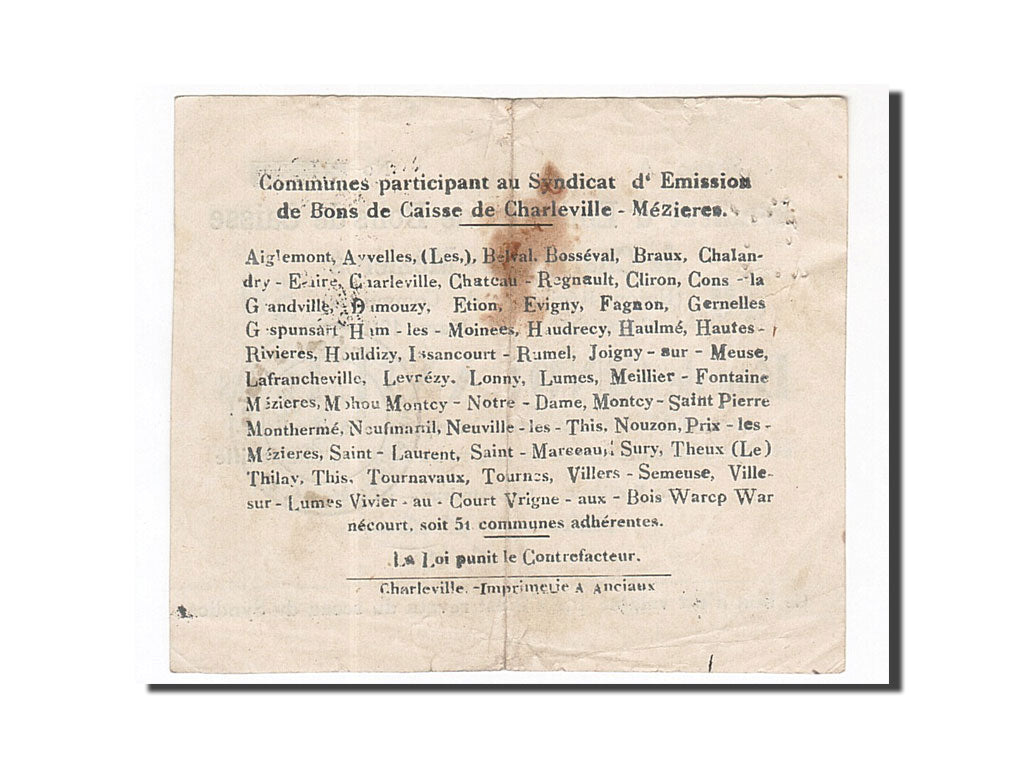 Communes participant au Syndicat d' Emission
de Bons de Caisse de Charleville - Mézieres.
Aiglemont, Ayvelles, (Les,), Belval, Bosséval, Braux, Chalan-
dry - Elaire, Charleville, Chateau - Regnault, Cliron, Cons - la
Grandville, Damouzy, Etion, Evigny, Fagnon, Gernelles
Gespunsart Ham - les - Moinees, Haudrecy, Haulmé, Hautes -
Rivieres, Houldizy, Issancourt - Rumel, Joigny - sur - Meuse,
Lafrancheville, Levrézy. Lonny, Lumes, Meillier - Fontaine
Mézieres, Mohou Montcy - Notre - Dame, Montcy - Saint Pierre
Monthermé, Neufmanil, Neuville - les - This, Nouzon, Prix - les -
Mézieres, Saint - Laurent, Saint - Marceau, Sury, Theux (Le)
Thilay, This, Tournavaux, Tournes, Villers - Semeuse, Ville-
sur - Lumes Vivier - au - Court Vrigne - aux - Bois Warcp War
nécourt, soit 51 communes adhérentes.
La Loi punit le Contrefacteur.
Charleville. - Imprimerie A Anciaux